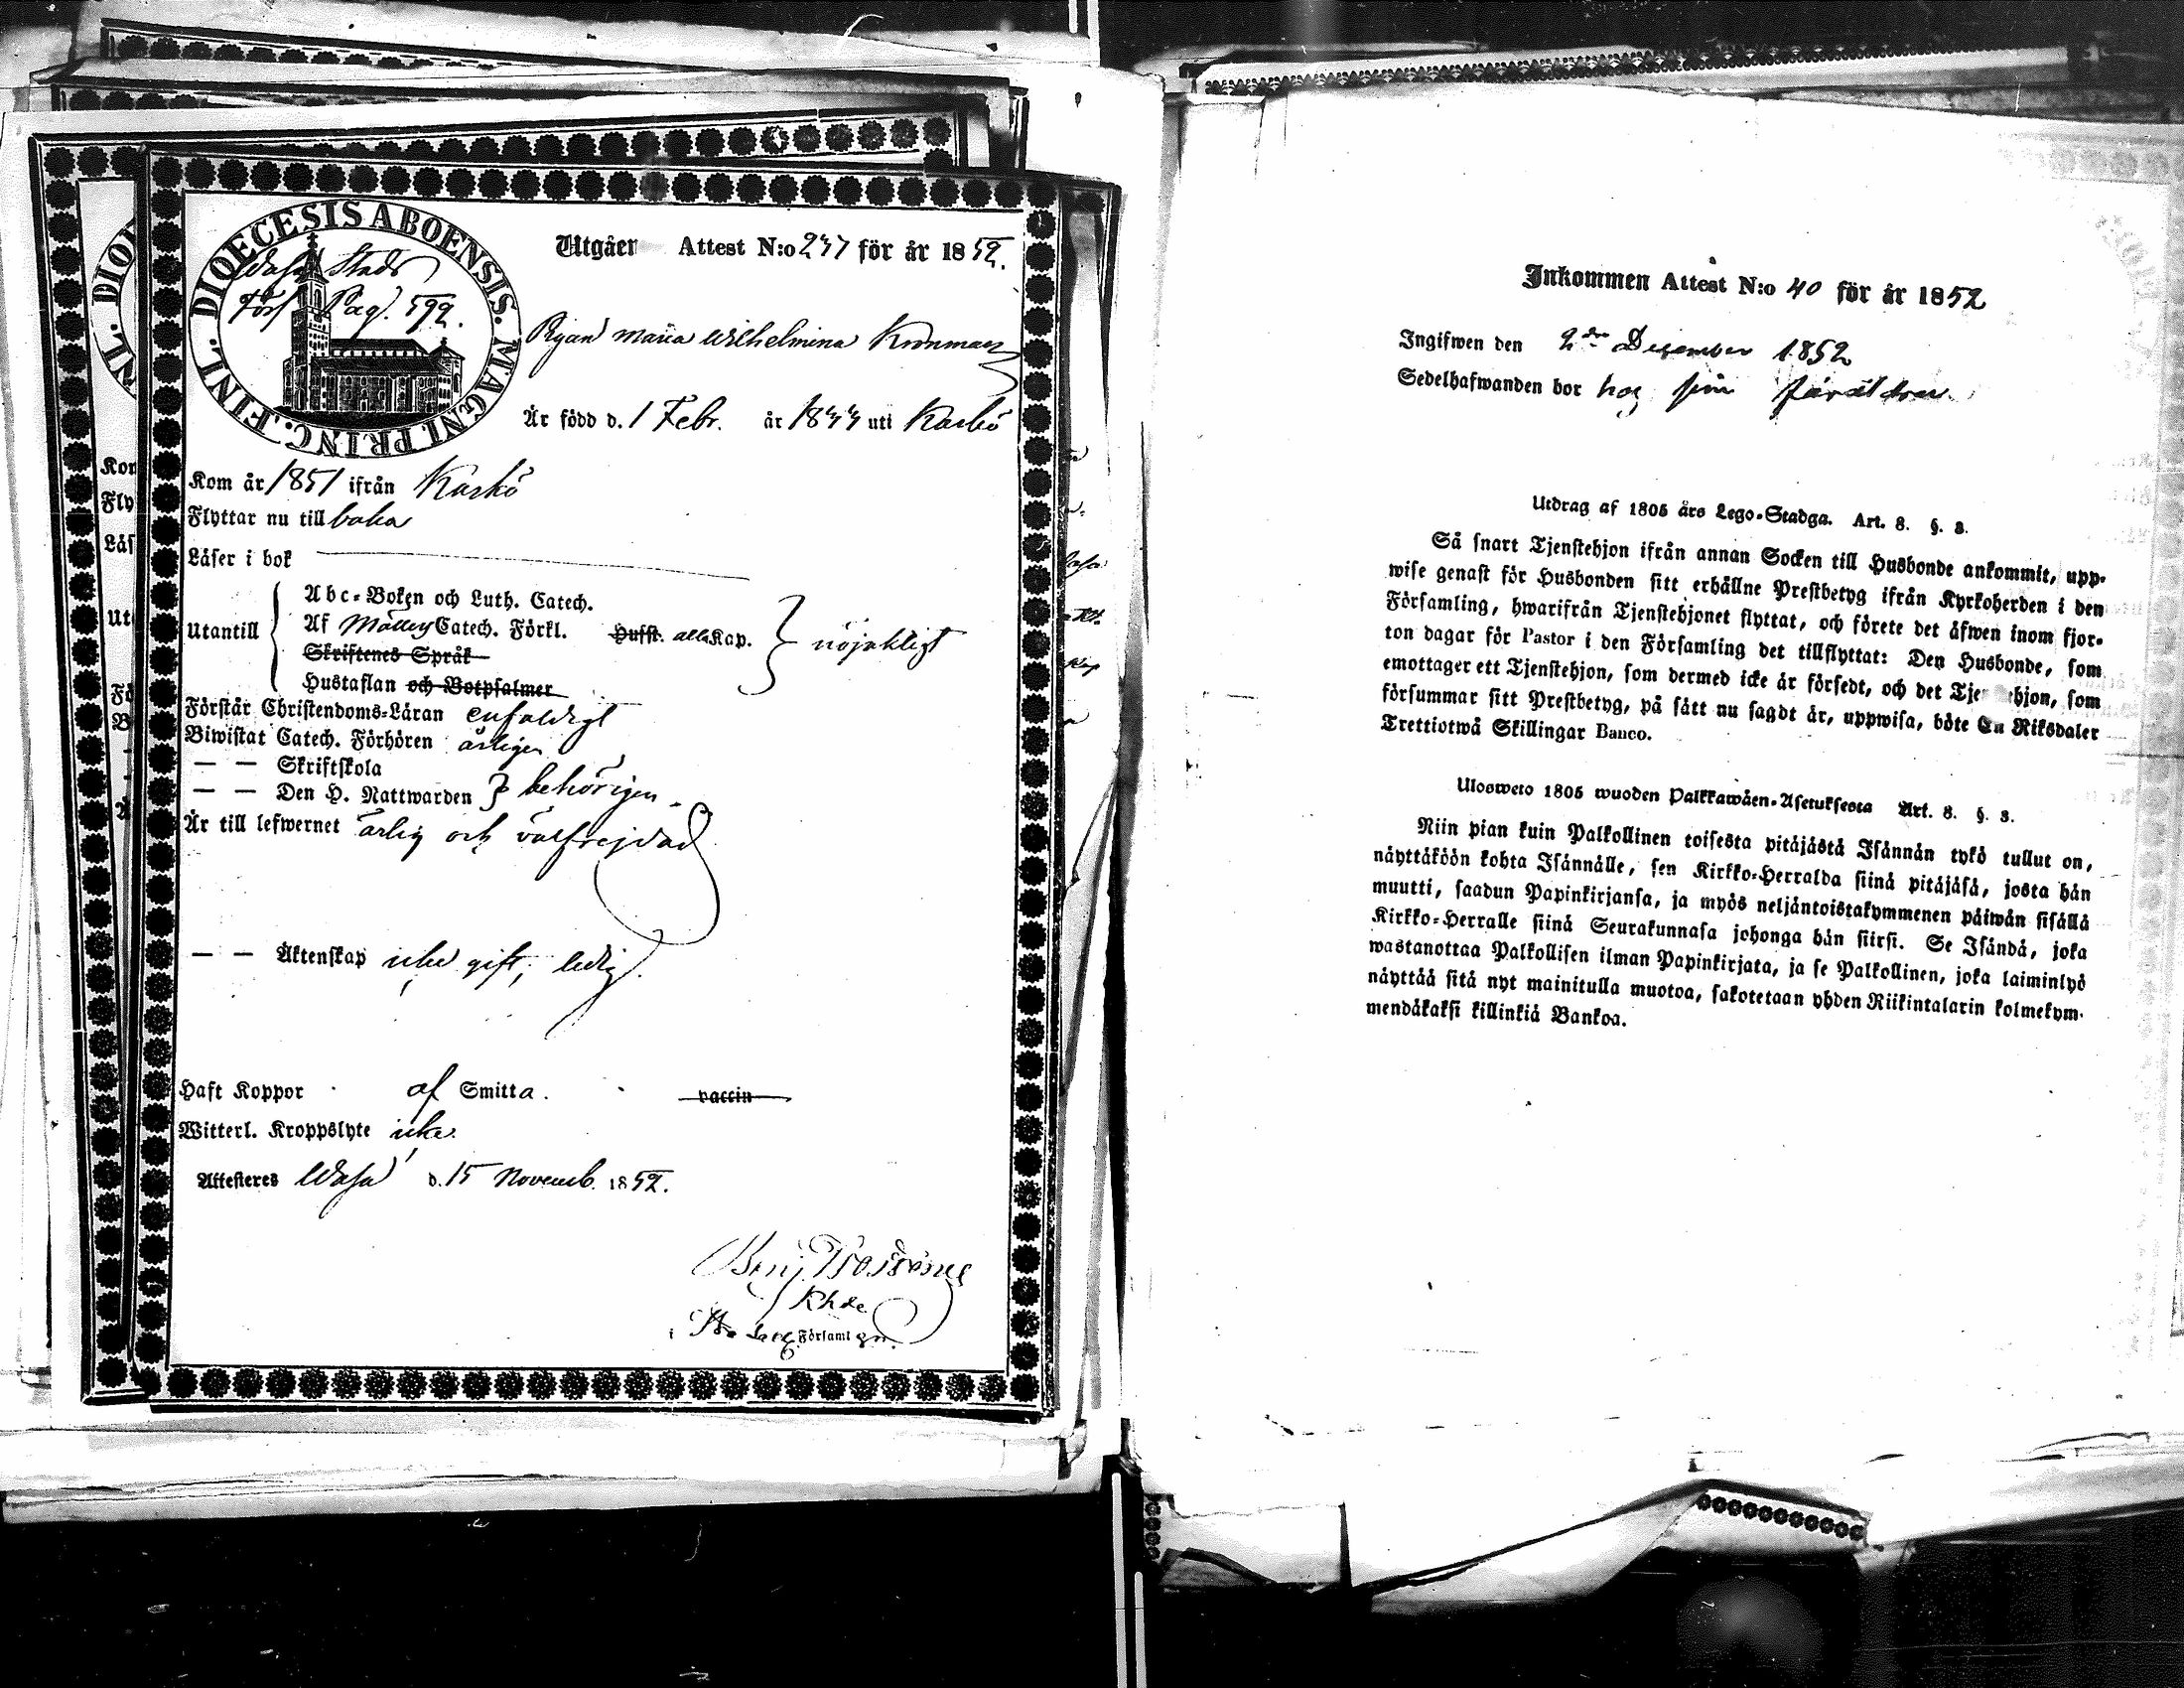 DIOECESIS ABOENSIS. MAGNI PRINC. FINL.
Wasa Stads
Förs Pag. 592.
Utgåer Attest N:o 247 för år 1852.
Pigan Maria Wilhelmina Kronman
Är född d. 1 Febr. år 1844 uti Kaskö
Kom år 1851 ifrån Kaskö
Flyttar nu till baka
Läser i bok
Utantill
Abc-Boken och Luth. Catech.
Af Möllers Catech. Förkl. Hufst. alla Kap.
Skriftenes Språk
Hustaflan och Botpsalmer
nöjaktigt
Förstår Christendoms-Läran enfaldigt
Biwistat Catech. Förhören årligen
— — Skriftskola
— — Den H. Nattwarden behörigen
Är till lefwernet ärlig och välfrejdad
— — Äktenskap icke gift, ledig.
Haft Koppor af Smitta. vaccin
Witterl. Kroppslyte icke.
Attesteres Wasa d. 15 Novemb. 1852.
Benj.
Khde
i Församl
Inkommen Attest N:o 40 för år 1852
Ingifwen den 2dra December 1852
Sedelhafwanden bor hos sina föräldrar.
Utdrag af 1805 års Lego-Stadga. Art. 8. §. 3.
Så snart Tjenstehjon ifrån annan Socken till Husbonde ankommit, upp-
wise genast för Husbonden sitt erhållne Prestbetyg ifrån Kyrkoherden i den
Församling, hwarifrån Tjenstehjonet flyttat, och förete det äfwen inom fjor-
ton dagar för Pastor i den Församling det tillflyttat: Den Husbonde, som
emottager ett Tjenstehjon, som dermed icke är försedt, och det Tje hjon, som
försummar sitt Prestbetyg, på sätt nu sagdt är, uppwisa, böte En Riksdaler
Trettiotwå Skillingar Banco.
Ulosweto 1805 wuoden Palkkawäen-Asetuksesta Art. 8. §. 3.
Niin pian kuin Palkollinen toisesta pitäjästä Isännän tykö tullut on,
näyttäköön kohta Isännälle, sen Kirkko-Herralda siinä pitäjäsä, josta hän
muutti, saadun Papinkirjansa, ja myös neljäntoistakymmenen päiwän sisällä
Kirkko-Herralle siinä Seurakunnasa johonga hän siirsi. Se Isändä, joka
wastanottaa Palkollisen ilman Papinkirjata, ja se Palkollinen, joka laiminlyö
näyttää sitä nyt mainitulla muotoa, sakotetaan yhden Riikintalarin kolmekym-
mendäkaksi killinkiä Bankoa.